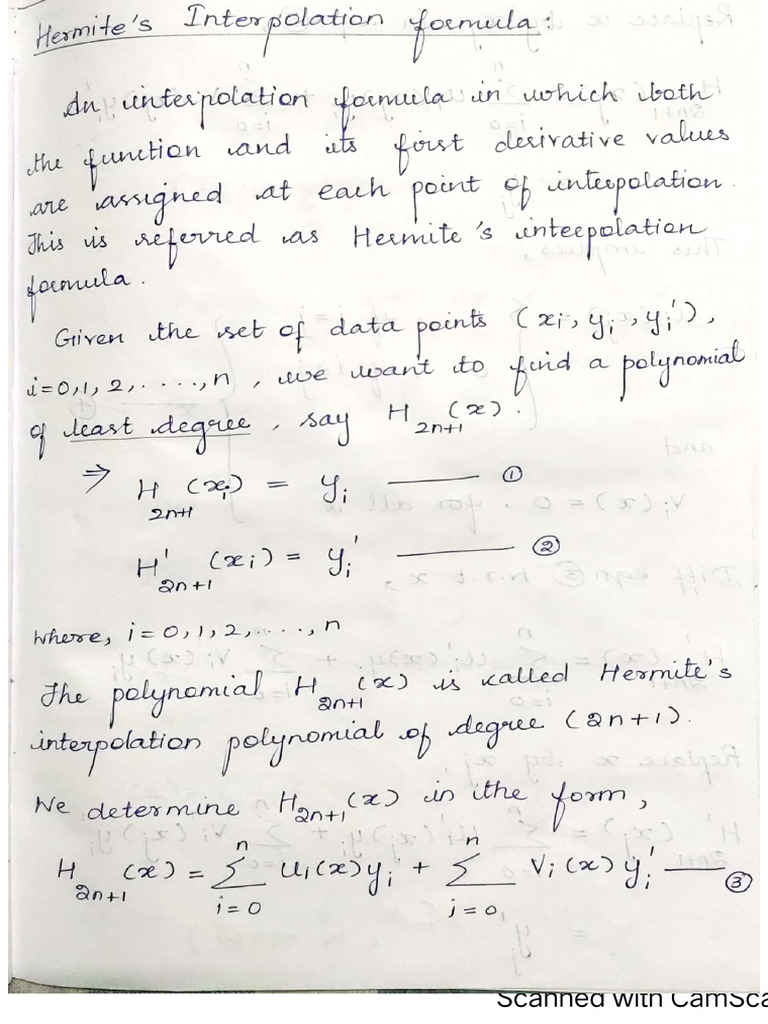 Hermite's Interpolation formula:
An interpolation formula in which both
the function and its first derivative values
are assigned at each point of interpolation.
This is referred as Hermite's interpolation
formula.
Given the set of data points (xi, yi, yi'),
i=0,1,2,....,n, we want to find a polynomial
of least degree, say H2n+1(x).
⇒ H2n+1(xi) = yi —— ①
H'2n+1(xi) = yi' —— ②
where, i=0,1,2,....,n
The polynomial H2n+1(x) is called Hermite's
interpolation polynomial of degree (2n+1).
We determine H2n+1(x) in the form,
H2n+1(x) = n∑i=0 ui(x)yi + n∑i=0 vi(x)yi' —— ③
Scanned with CamSca